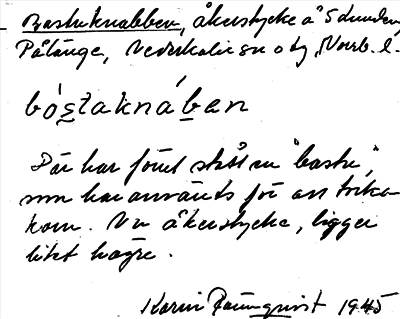 Bastuknabben, åkerstycke å
Pålänge, Nederkalix sn o tg, Norrb. l.
bóstaknában
Där har förut stått en "bastu",
som har använts för att torka
korn. Nu åkerstycke, ligger
litet högre.
Karin 1945